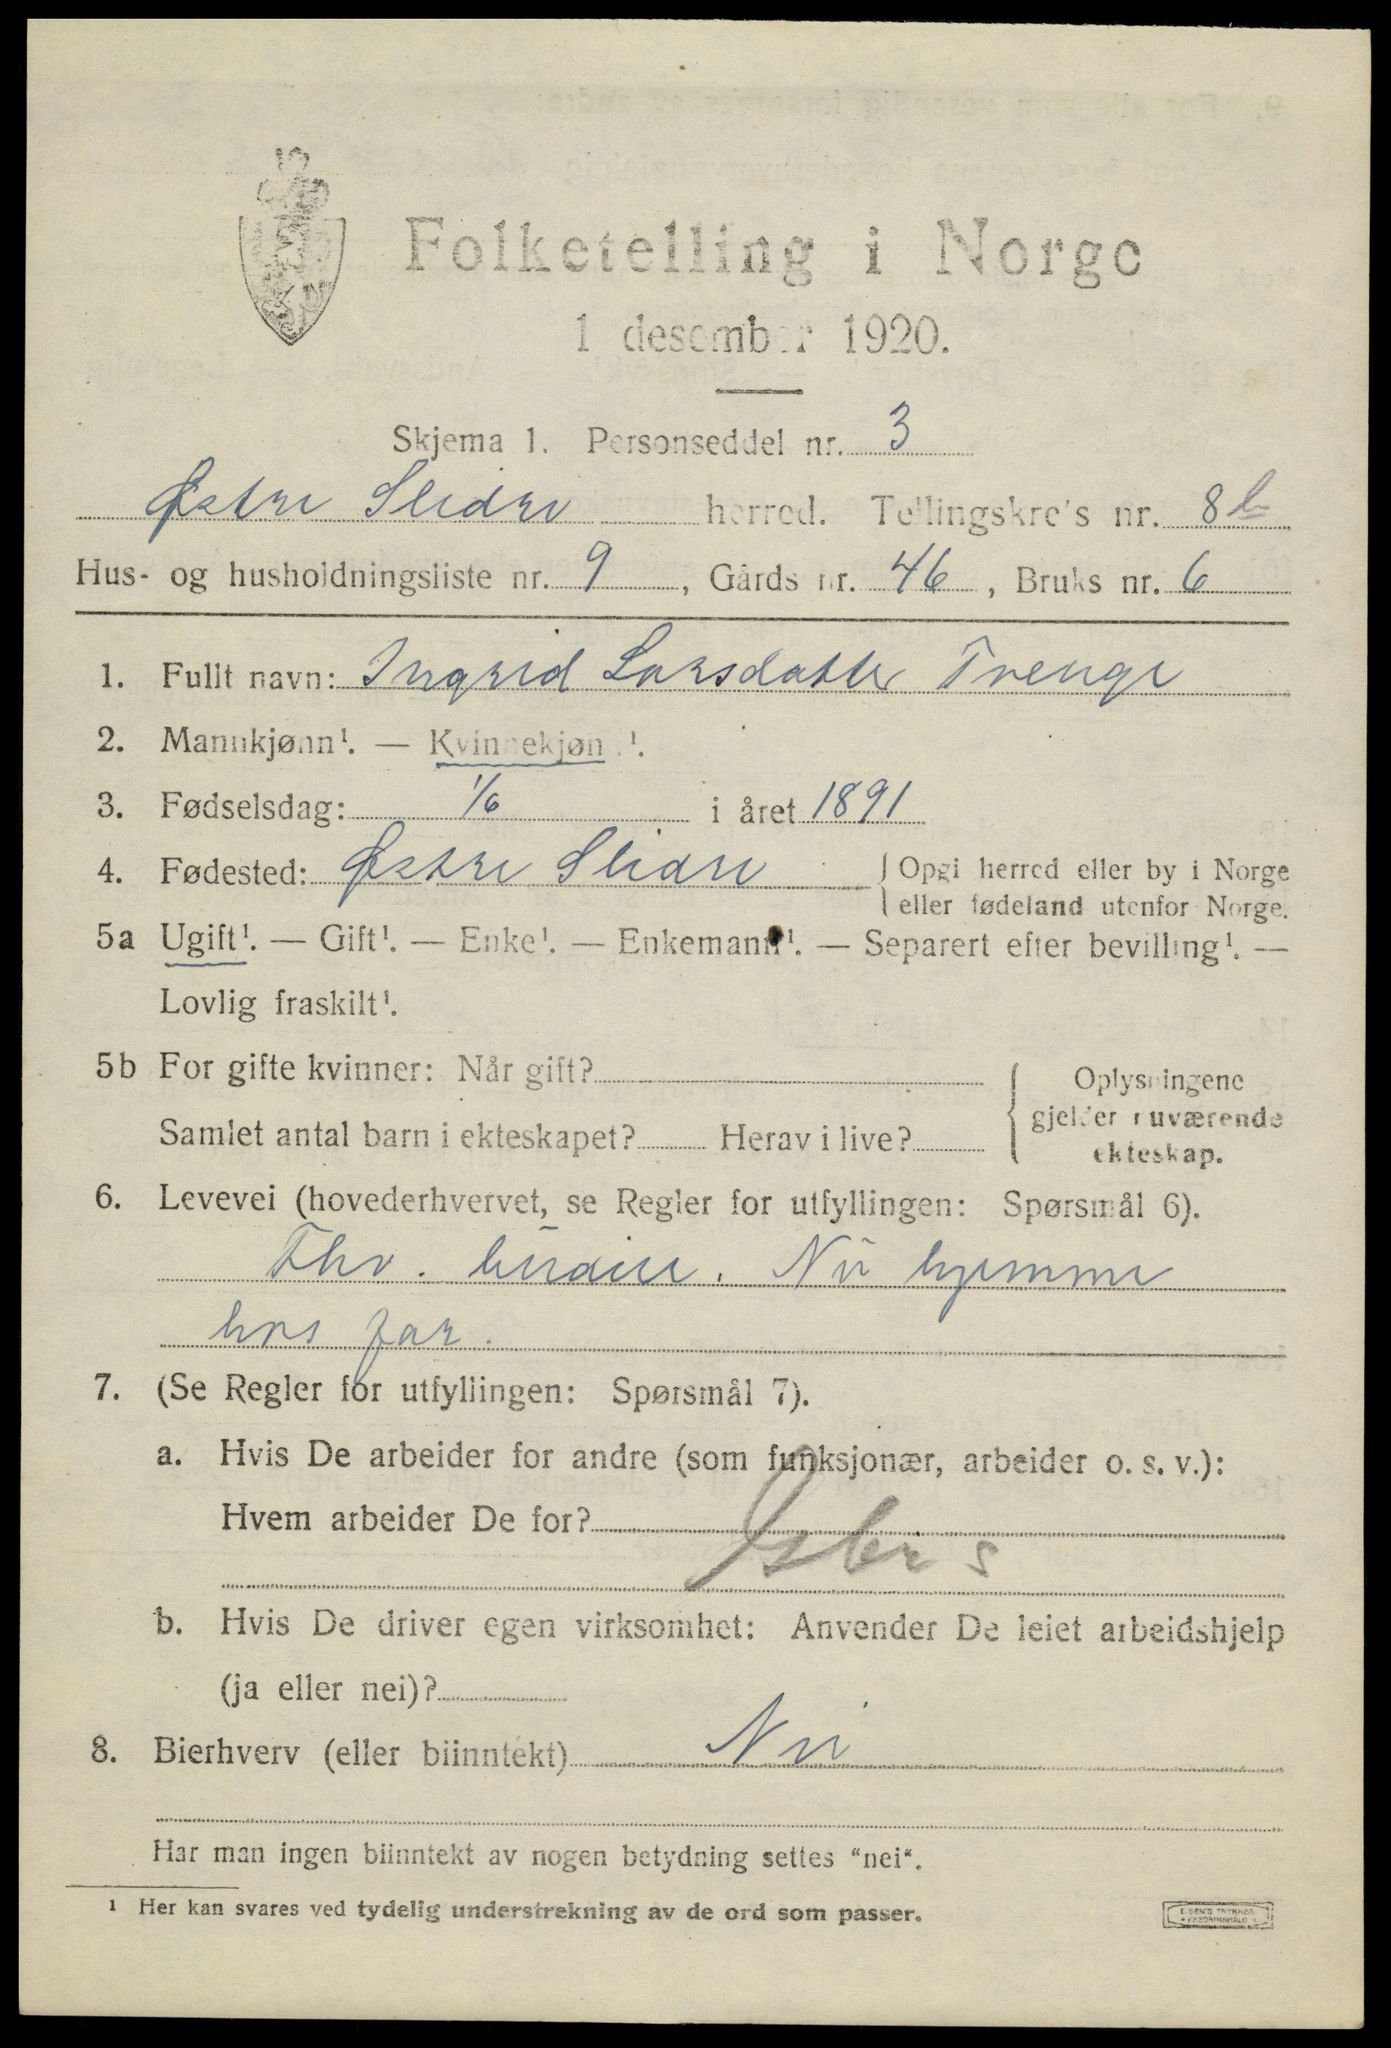 Folketelling i Norge
1 desember 1920.
Skjema 1. Personseddel nr. 3
Østre Slidre herred. Tellingskrets nr. 8 b
Hus- og husholdningsliste nr. 9, Gårds nr. 46, Bruks nr. 6
1. Fullt navn: Ingrid Larsdatter Trenge
2. Mannkjønn¹. — Kvinnekjønn¹.
3. Fødselsdag: 1/6 i året 1891
4. Fødested: Østre Slidre { Opgi herred eller by i Norge
eller fødeland utenfor Norge.
5a Ugift¹. — Gift¹. — Enke¹. — Enkemann¹. — Separert efter bevilling¹. —
Lovlig fraskilt¹.
5b For gifte kvinner: Når gift? { Oplysningene
gjelder nuværende
Samlet antal barn i ekteskapet? Herav i live?
ekteskap.
6. Levevei (hovederhvervet, se Regler for utfyllingen: Spørsmål 6).
Fhv. budeie. Nu hjemme
hos far.
7. (Se Regler for utfyllingen: Spørsmål 7).
a. Hvis De arbeider for andre (som funksjonær, arbeider o. s. v.):
Hvem arbeider De for?
b. Hvis De driver egen virksomhet: Anvender De leiet arbeidshjelp
(ja eller nei)?
8. Bierhverv (eller biinntekt) Nei
Har man ingen biinntekt av nogen betydning settes "nei".
¹ Her kan svares ved tydelig understrekning av de ord som passer.